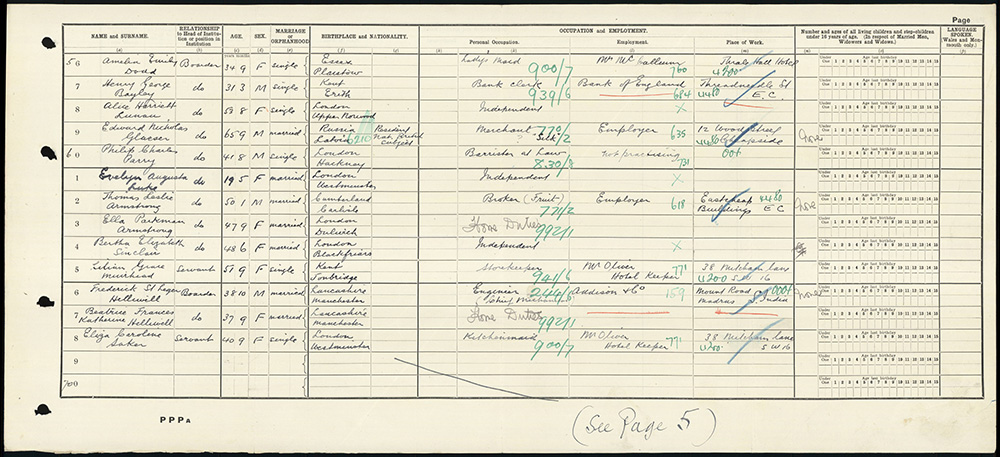 Page
NAME and SURNAME.
RELATIONSHIP to Head of Institution or position in Institution
AGE.
SEX.
MARRIAGE or ORPHANHOOD
BIRTHPLACE and NATIONALITY.
OCCUPATION and EMPLOYMENT.
Personal Occupation.
Employment.
Place of Work.
Number and ages of all living children and step-children under 16 years of age. (In respect of Married Men, Widowers and Widows).
LANGUAGE SPOKEN. (Wales and Monmouth only.)
56 Amelia Emily Dodd Boarder 34 9 F single Essex Plaistow Lady's Maid 900/7 Mrs McCallum 760
7 Henry George Bayley do 31 3 M single Kent Erith Bank clerk 939/6 Bank of England 684 Threadneedle St E.C.
8 Alice Harriett do 59 8 F single London Upper Norwood Independent X
9 Edward Nicholas Glaeser do 65 9 M married Russia Latvia Resident Merchant 770/2 Silk Employer 635 12 Wood Street Cheapside None
60 Philip Charles Parry do 41 8 M single London Hackney Barrister at Law 830/8 not practising 731
1 Evelyn Augusta Luke do 19 5 F married London Westminster Independent X
2 Thomas Leslie Armstrong do 50 1 M married Cumberland Carlisle Broker (Fruit) 771/2 Employer 618 Eastcheap Buildings E C None
3 Ella Parkman Armstrong do 47 9 F married London Dulwich Home Duties 992/1
4 Bertha Elizabeth Sinclair do 48 6 F married London Blackfriars Independent X
5 Lilian Grace Muirhead Servant 51 9 F single Kent Tonbridge Storekeeper 941/6 Mr Oliver Hotel Keeper 771 38 Mitcham Lane S.W. 16
6 Frederick St Leger Helliwell Boarder 38 10 M married Lancashire Manchester Engineer Addison & Co 159 Mount Road Madras India None
7 Beatrice Frances Katherine Helliwell do 37 9 F married Lancashire Manchester Home Duties 992/1
8 Eliza Caroline Saker Servant 40 9 F single London Westminster Kitchenmaid 900/7 Mr Oliver Hotel Keeper 771 38 Mitcham Lane S W 16
9
700
PPPA
(See Page 5)